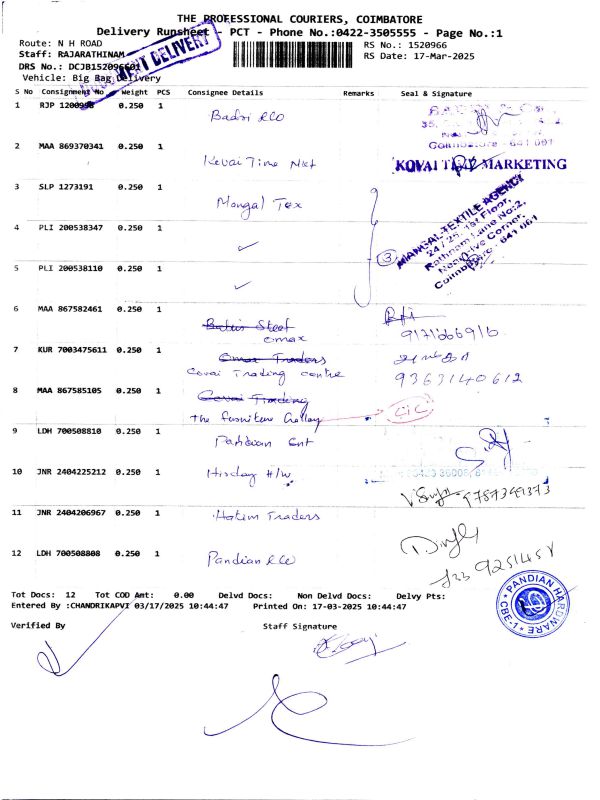 THE PROFESSIONAL COURIERS, COIMBATORE
Delivery Runsheet - PCT - Phone No.:0422-3505555 - Page No.:1
Route: N H ROAD
RS No.: 1520966
Staff: RAJARATHINAM
RS Date: 17-Mar-2025
DRS No.: DCJB152096601
DELIVERY
Vehicle: Big Bag Delivery
S No Consignment No Weight PCS Consignee Details Remarks Seal & Signature
1 RJP 1200998 0.250 1 Badri &CO
Coimbatore - 641 001
2 MAA 869370341 0.250 1 Kovai Time Mkt
KOVAI TIME MARKETING
3 SLP 1273191 0.250 1 Mangal Tex
3
MANGAL TEXTILE AGENCY
24 / 25, 1st Floor,
Rathnam Lane No:2,
Near Five Corner,
Coimbatore - 641 001
4 PLI 200538347 0.250 1 ✓
5 PLI 200538110 0.250 1 ✓
6 MAA 867582461 0.250 1 Steel
omax
9171666916
7 KUR 7003475611 0.250 1 Omax Traders
Covai Trading centre
9363140612
8 MAA 867585105 0.250 1 Covai Trading
The furniture Galley
9 LDH 700508810 0.250 1 Pandian Ent
10 JNR 2404225212 0.250 1 H/W
9787391373
11 JNR 2404206967 0.250 1 Hatim Traders
12 LDH 700508808 0.250 1 Pandian &CO
PANDIAN HARDWARE
CBE-1
Tot Docs: 12 Tot COD Amt: 0.00 Delvd Docs: Non Delvd Docs: Delvy Pts:
Entered By :CHANDRIKAPVI 03/17/2025 10:44:47 Printed On: 17-03-2025 10:44:47
Verified By Staff Signature